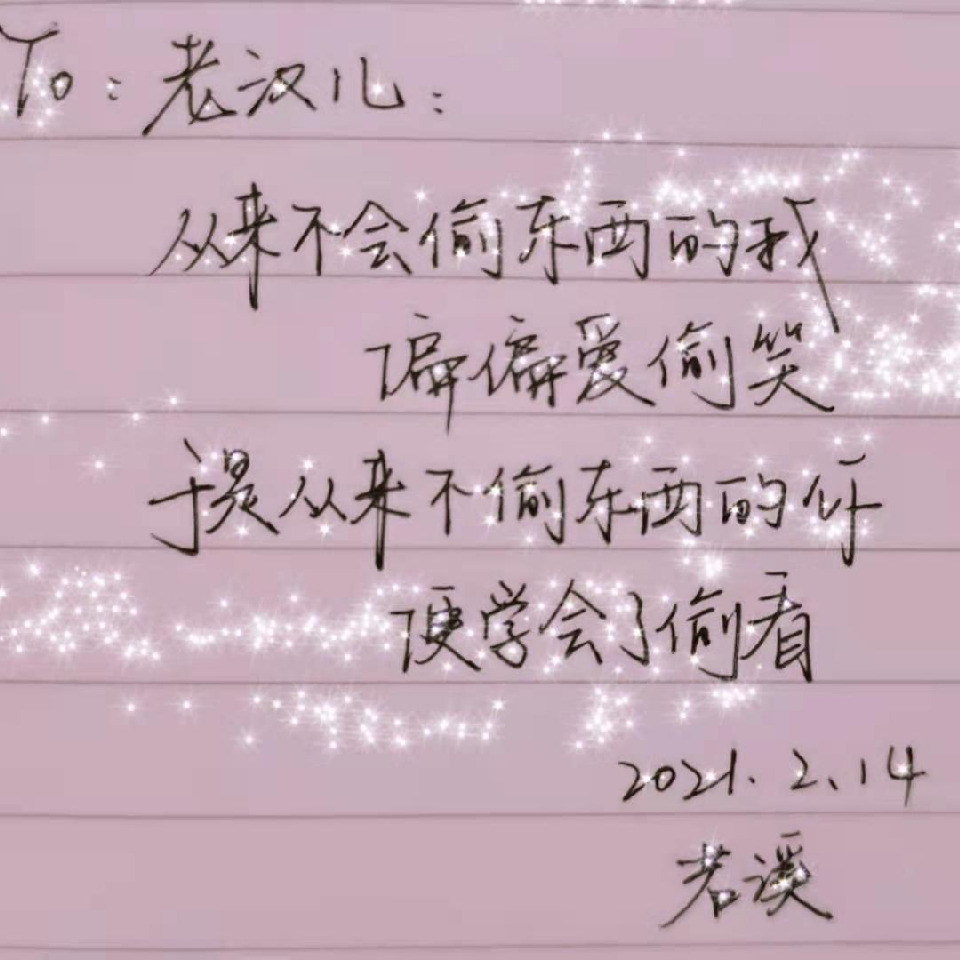 To：老汉儿：
从来不会偷东西的我
偏偏爱偷笑
于是从来不偷东西的你
便学会了偷看
2021.2.14
若溪